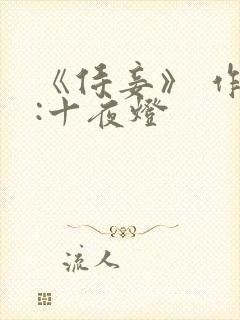 《侍妾》 作
:十夜燈
流人